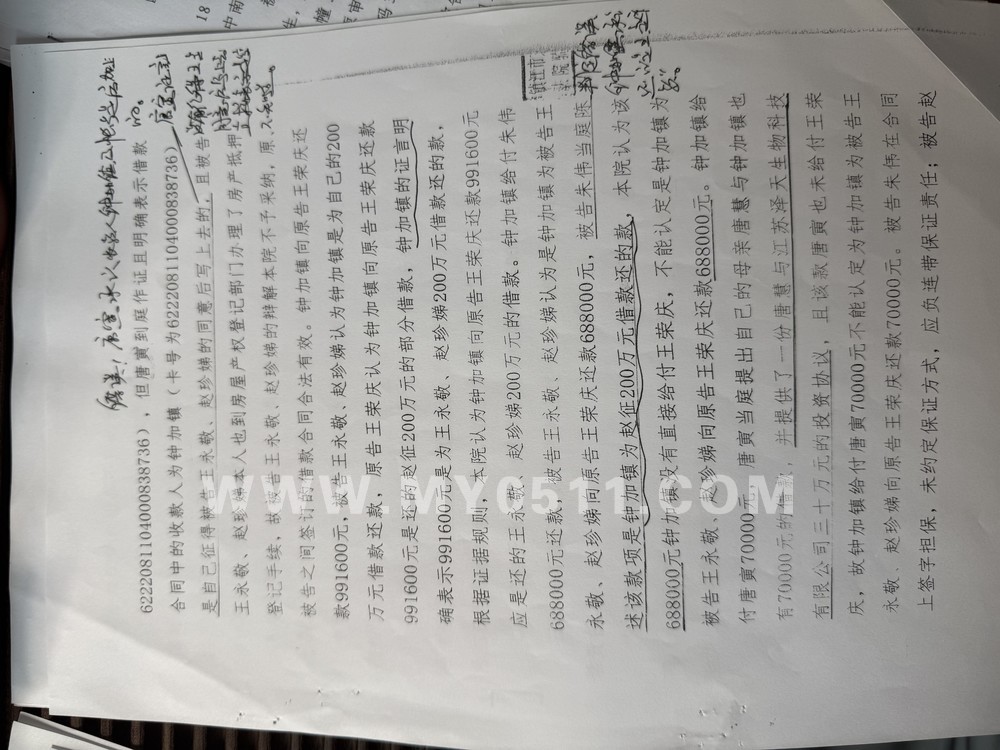 6222081104000838736），但唐寅到庭作证且明确表示借款
合同中的收款人为钟加镇（卡号为6222081104000838736）
是自己征得被告王永敬、赵珍娣的同意后写上去的，且被告
王永敬、赵珍娣本人也到房屋产权登记部门办理了房产抵押
登记手续，故被告王永敬、赵珍娣的辩解本院不予采纳，原、
被告之间签订的借款合同合法有效。钟加镇向原告王荣庆还
款991600元，被告王永敬、赵珍娣认为钟加镇是为自己的200
万元借款还款，原告王荣庆认为钟加镇向原告王荣庆还款
991600元是还的赵征200万元的部分借款，钟加镇的证言明
确表示991600元是为王永敬、赵珍娣200万元借款还的款，
根据证据规则，本院认为钟加镇向原告王荣庆还款991600元
应是还的王永敬、赵珍娣200万元的借款。钟加镇给付朱伟
688000元还款，被告王永敬、赵珍娣认为是钟加镇为被告王
永敬、赵珍娣向原告王荣庆还款688000元，被告朱伟当庭陈
述该款项是钟加镇为赵征200万元借款还的款，本院认为该
688000元钟加镇没有直接给付王荣庆，不能认定是钟加镇为
被告王永敬、赵珍娣向原告王荣庆还款688000元。钟加镇给
付唐寅70000元，唐寅当庭提出自己的母亲唐慧与钟加镇也
有70000元的借款，并提供了一份唐慧与江苏泽天生物科技
有限公司三十万元的投资协议，且该款唐寅也未给付王荣
庆，故钟加镇给付唐寅70000元不能认定为钟加镇为被告王
永敬、赵珍娣向原告王荣庆还款70000元。被告朱伟在合同
上签字担保，未约定保证方式，应负连带保证责任；被告赵
WWW.MY0511.COM